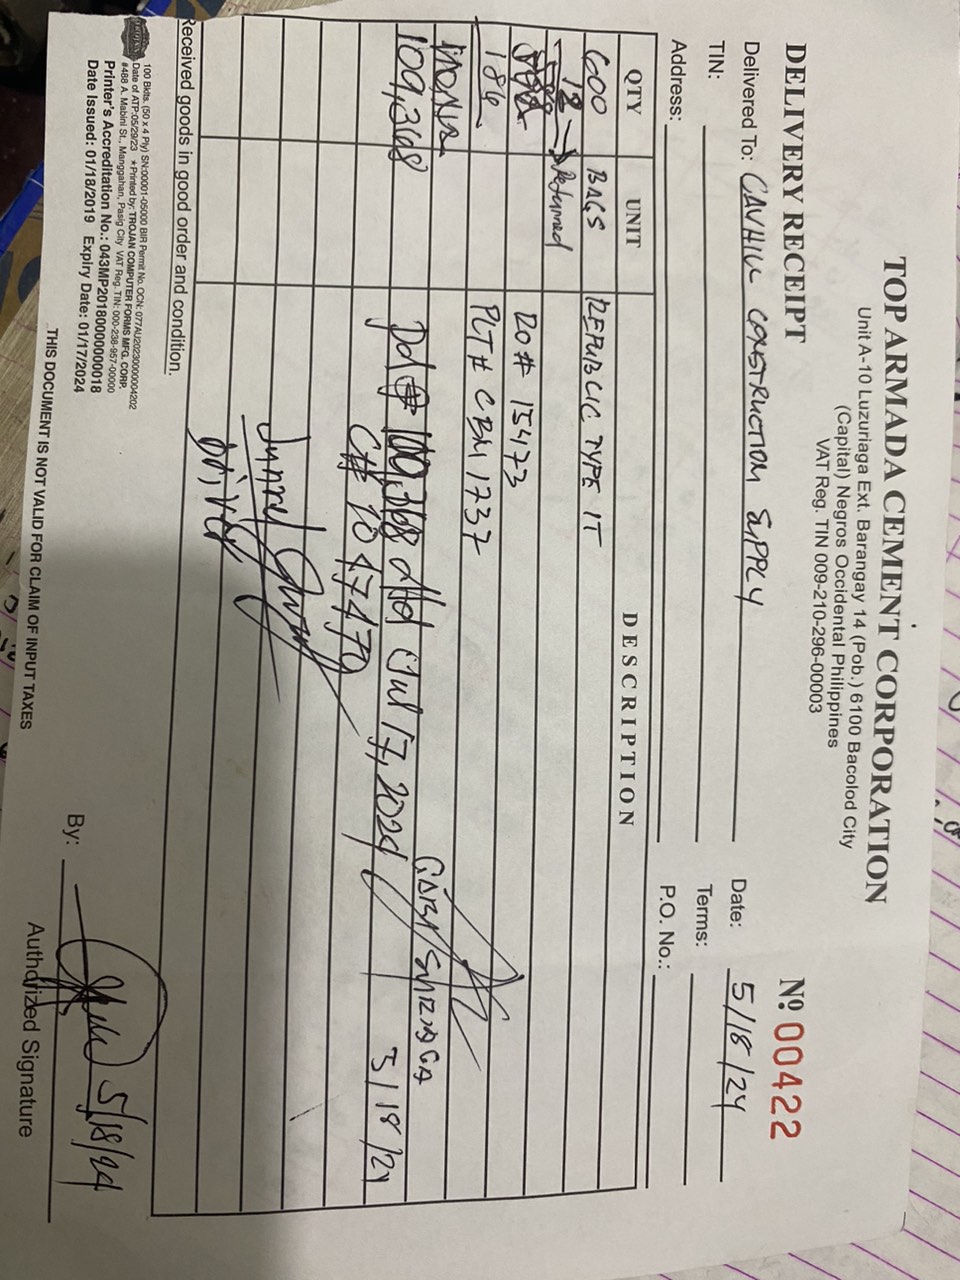 TOP ARMADA CEMENT CORPORATION
Unit A-10 Luzuriaga Ext. Barangay 14 (Pob.) 6100 Bacolod City
(Capital) Negros Occidental Philippines
VAT Reg. TIN 009-210-296-00003
DELIVERY RECEIPT
Nº 00422
Delivered To: CAVHIL CONSTRUCTION SUPPLY
Date: 5/18/24
TIN:
Terms:
Address:
P.O. No.:
QTY UNIT DESCRIPTION
600 BAGS REPUBLIC TYPE 1T
18 → Returned
DO# 15473
186 PLT# CBM 1237
109,368
Dd @ 109,368 dtd Jul 17, 2024 5/18/24
C# 10 47470
Driver
Received goods in good order and condition.
100 Bklts. (50 x 4 Ply) SN:00001-05000 BIR Permit No. OCN: 077AU20230000004202
Date of ATP:05/29/23 ★Printed by: TROJAN COMPUTER FORMS MFG. CORP.
#488 A. Mabini St., Manggahan, Pasig City VAT Reg. TIN: 000-238-957-00000
Printer's Accreditation No.: 043MP20180000000018
Date Issued: 01/18/2019 Expiry Date: 01/17/2024
By: 5/18/24
Authorized Signature
THIS DOCUMENT IS NOT VALID FOR CLAIM OF INPUT TAXES